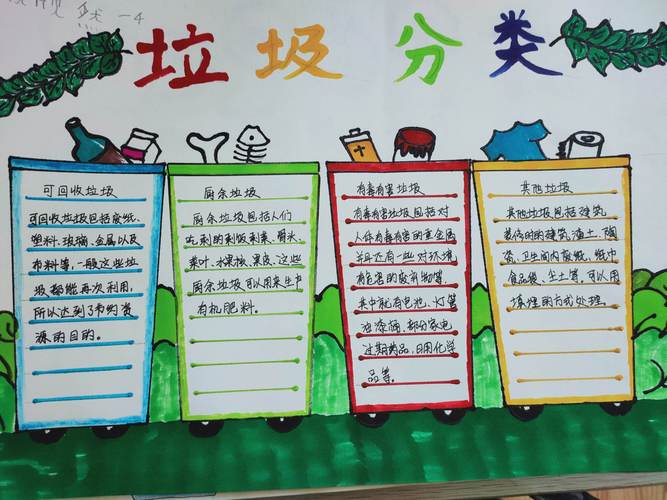 然 一4
垃圾分类
可回收垃圾
可回收垃圾包括废纸、
塑料、玻璃、金属以及
布料等，一般这些垃
圾都能再次利用，
所以达到了节约资
源的目的。
厨余垃圾
厨余垃圾包括人们
吃剩的剩饭剩菜、骨头、
菜叶、水果核、果皮、这些
厨余垃圾可以用来生产
有机肥料。
有毒有害垃圾
有毒有害垃圾包括对
人体有毒有害的重金属
并且还有一些对环境
有危害的废弃物等，
其中就有电池、灯管
油漆桶、部分家电
过期药品、日用化学
品等。
其他垃圾
其他垃圾包括建筑
装修时的建筑渣土、陶
瓷、卫生间内废纸、纸巾
食品袋、尘土等。可以用
填埋的方式处理